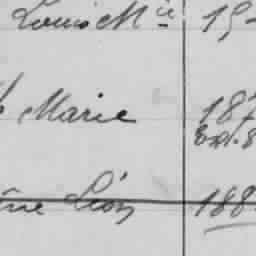 Louis Mie 19
Marie 187
Ext. 8
Léon 188